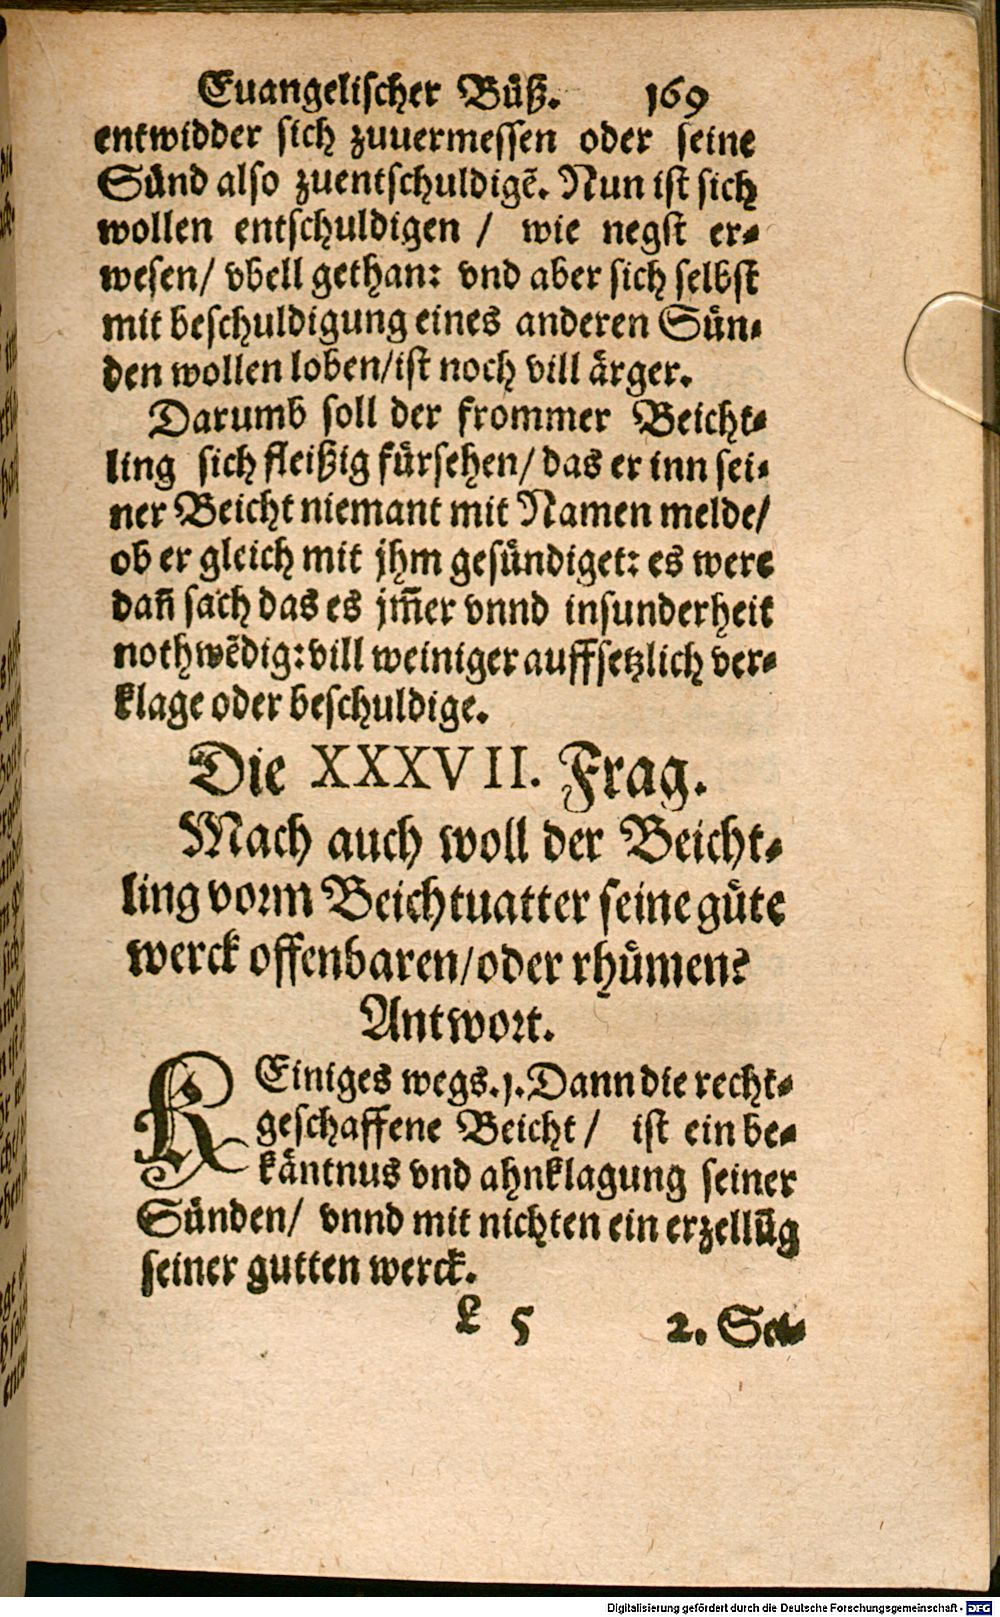 Euangelischer Bůß. 169
entwidder sich zuuermessen oder seine
Sünd also zuentschuldigẽ. Nun ist sich
wollen entschuldigen / wie negst er-
wesen/ vbell gethan: vnd aber sich selbst
mit beschuldigung eines anderen Sün-
den wollen loben/ist noch vill ärger.
Darumb soll der frommer Beicht-
ling sich fleißig fürsehen/ das er inn sei-
ner Beicht niemant mit Namen melde/
ob er gleich mit jhm gesündiget: es were
dañ sach das es jm̃er vnnd insunderheit
nothwẽdig: vill weiniger auffsetzlich ver-
klage oder beschuldige.
Die XXXVII. Frag.
Mach auch woll der Beicht-
ling vorm Beichtuatter seine gůte
werck offenbaren/oder rhůmen?
Antwort.
KEiniges wegs. 1. Dann die recht-
geschaffene Beicht / ist ein be-
käntnus vnd ahnklagung seiner
Sünden/ vnnd mit nichten ein erzellũg
seiner gutten werck.
L 5 2. Sei-
Digitalisierung gefördert durch die Deutsche Forschungsgemeinschaft - DFG